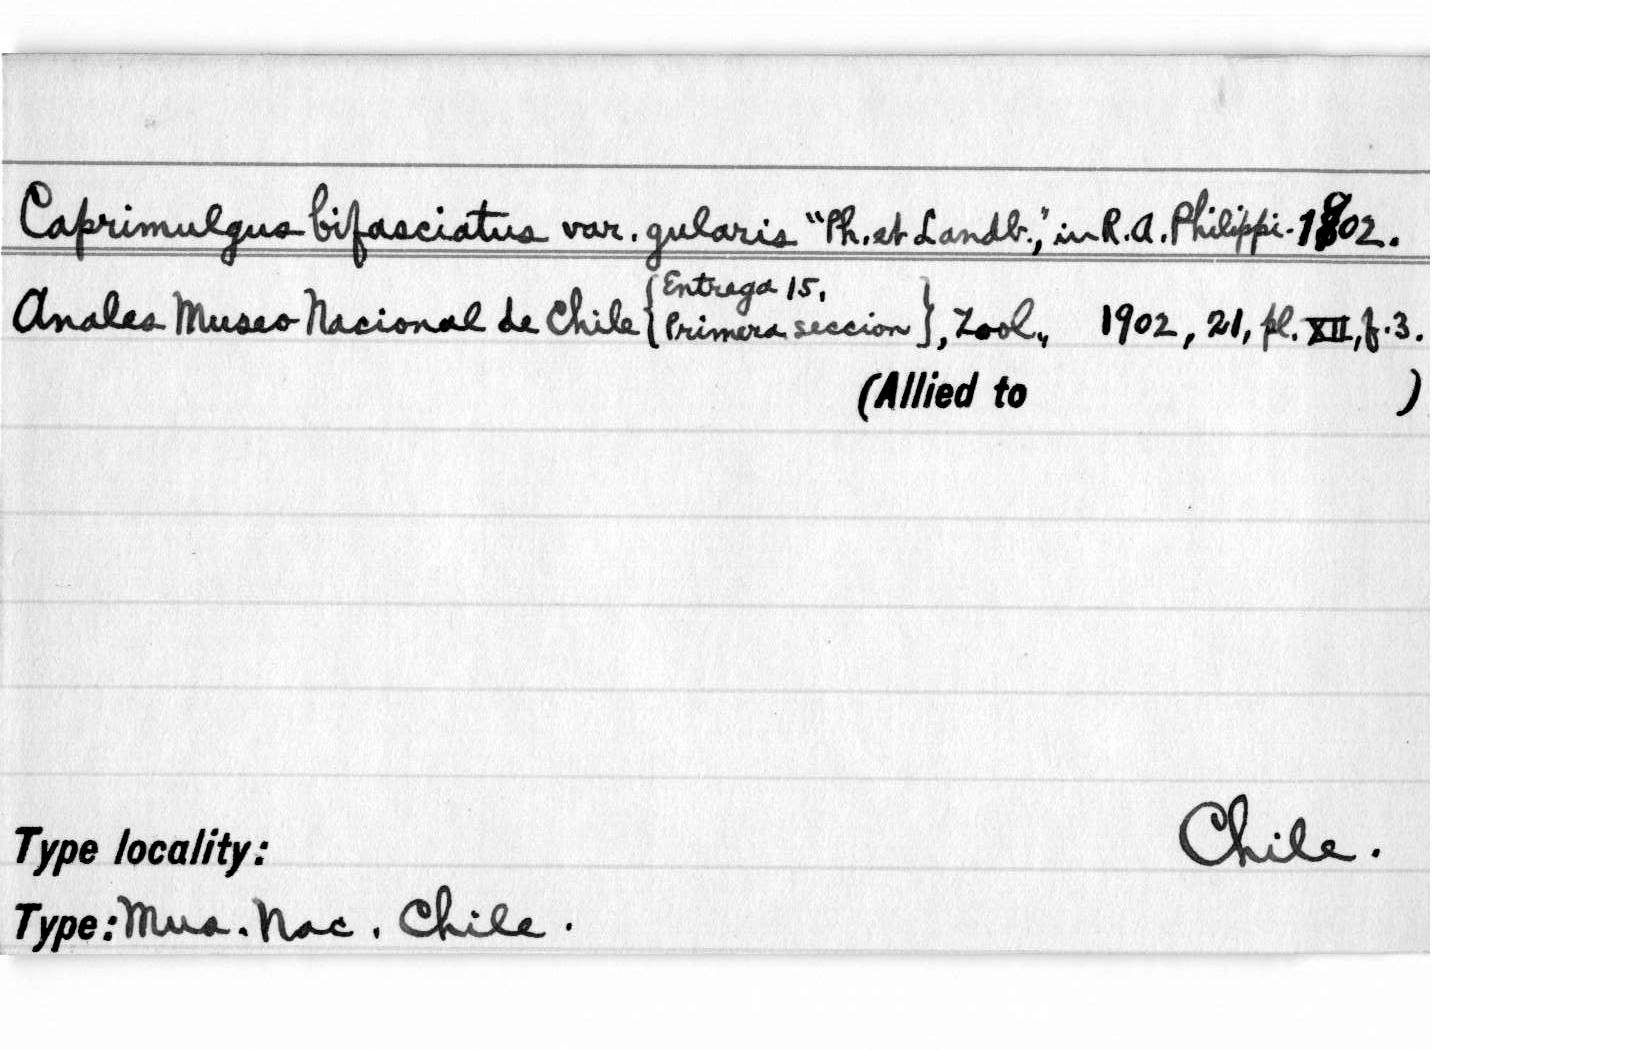 Caprimulgus bifasciatus var. gularis "Ph. et Landb.," in R.A. Philippi. 1902.
Anales Museo Nacional de Chile {Entrega 15, Primera seccion}, Zool., 1902, 21, pl. XII, f. 3.
(Allied to )
Type locality: Chile.
Type: Mus. Nac. Chile.